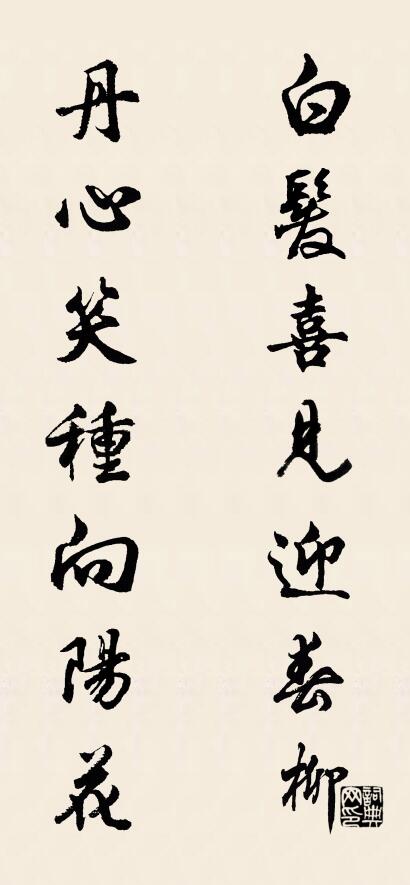 白髮喜見迎春柳
丹心笑種向陽花
詞典网